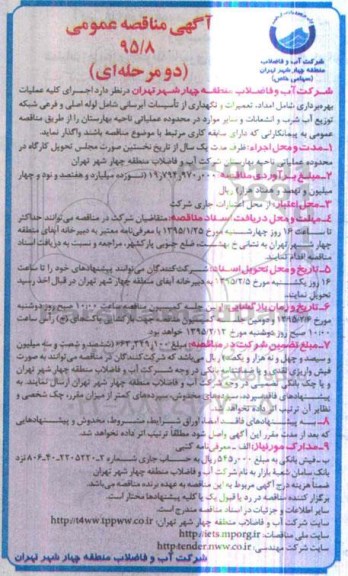 آگهی مناقصه عمومی
۹۵/۸
(دو مرحله‌ای)
شرکت آب و فاضلاب
منطقه چهار شهر تهران
(سهامی خاص)
شرکت آب و فاضلاب منطقه چهار شهر تهران درنظر دارد اجرای کلیه عملیات
بهره‌برداری شامل امداد، تعمیرات و نگهداری از تأسیسات آبرسانی شامل لوله اصلی و فرعی شبکه
توزیع آب شرب و انشعابات و سایر موارد در محدوده عملیاتی ناحیه بهارستان را از طریق مناقصه
عمومی به پیمانکارانی که دارای سابقه کاری مرتبط با موضوع مناقصه باشند واگذار نماید.
۱-مدت و محل اجراء: ظرف مدت یک سال از تاریخ نخستین صورت مجلس تحویل کارگاه در
محدوده عملیاتی ناحیه بهارستان شرکت آب و فاضلاب منطقه چهار شهر تهران
۲-مبلغ برآوردی مناقصه: ۱۹,۷۹۴,۹۷۰,۰۰۰ (نوزده میلیارد و هفتصد و نود و چهار
میلیون و نهصد و هفتاد هزار) ریال
۳-محل اعتبار: از محل اعتبارات جاری شرکت
۴-مهلت و محل دریافت اسناد مناقصه: متقاضیان شرکت در مناقصه می‌توانند حداکثر
تا ساعت ۱۶ روز چهارشنبه مورخ ۱۳۹۵/۱/۲۵ با معرفی‌نامه معتبر به دبیرخانه آبفای منطقه
چهار شهر تهران به نشانی خ بهشت، ضلع جنوبی پارکشهر، مراجعه و نسبت به دریافت اسناد
مناقصه اقدام نمایند.
۵-تاریخ و محل تحویل اسناد: شرکت‌کنندگان می‌توانند پیشنهادهای خود را تا ساعت
۱۶ روز یکشنبه مورخ ۱۳۹۵/۲/۵ به دبیرخانه آبفای منطقه چهار شهر تهران در قبال اخذ رسید
تحویل نمایند.
۶-تاریخ و زمان بازگشایی: اولین جلسه کمیسیون مناقصه ساعت ۱۰:۰۰ صبح روز دوشنبه
مورخ ۱۳۹۵/۲/۶ و دومین جلسه کمیسیون مناقصه (بازگشایی پاکت‌های ج) راس ساعت
۱۰:۰۰ صبح روز دوشنبه مورخ ۱۳۹۵/۲/۱۳ خواهد بود.
۷-مبلغ تضمین شرکت در مناقصه: مبلغ ۶۶۳,۳۴۹,۱۰۰ (ششصد و شصت و سه میلیون
و سیصد و چهل و نه هزار و یکصد) ریال می‌باشد که شرکت‌کنندگان در مناقصه می‌توانند به صورت
فیش واریزی نقدی و یا ضمانتنامه بانکی در وجه شرکت آب و فاضلاب منطقه چهار شهر تهران
و یا چک بانکی تضمینی در وجه شرکت آب و فاضلاب منطقه چهار شهر تهران ارسال نمایند. به
پیشنهادهای فاقد سپرده، سپرده‌های مخدوش، سپرده‌های کمتر از میزان مقرر، چک شخصی و
نظایر آن ترتیب اثر داده نخواهد شد.
۸-به پیشنهادهای فاقد امضا، اوراق شرایط، مشروط، مخدوش و پیشنهادهایی
که بعد از مدت مقرر این آگهی واصل شود مطلقاً ترتیب اثر داده نخواهد شد.
۹-مدارک مورد نیاز: الف- معرفی‌نامه کتبی
ب- فیش بانکی به مبلغ ۵۴۵۰۰۰ ریال به حساب جاری شماره
بانک سامان شعبه بازار به نام شرکت آب و فاضلاب منطقه چهار شهر تهران
ضمناً هزینه درج آگهی مربوط به این مناقصه به عهده برنده مناقصه می‌باشد.
برگزار کننده مناقصه در رد یا قبول یک یا کلیه پیشنهادها مختار است.
سایر اطلاعات و جزئیات در اسناد مناقصه مندرج است.
سایت شرکت آب و فاضلاب منطقه چهار شهر تهران: http://t4ww.tppww.co.ir
سایت ملی مناقصات: http://iets.mporg.ir
سایت شرکت مهندسی: http://tender.nww.co.ir
شرکت آب و فاضلاب منطقه چهار شهر تهران